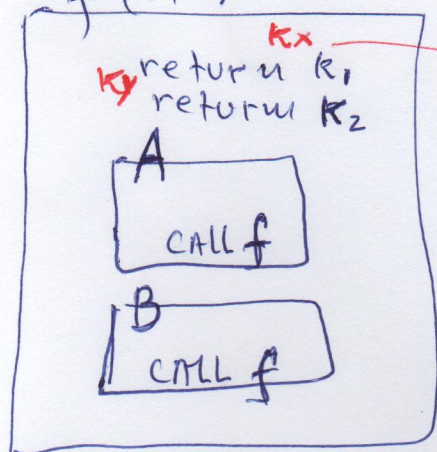 Kx
Ky return K₁
return K₂
A
CALL f
B
CALL f